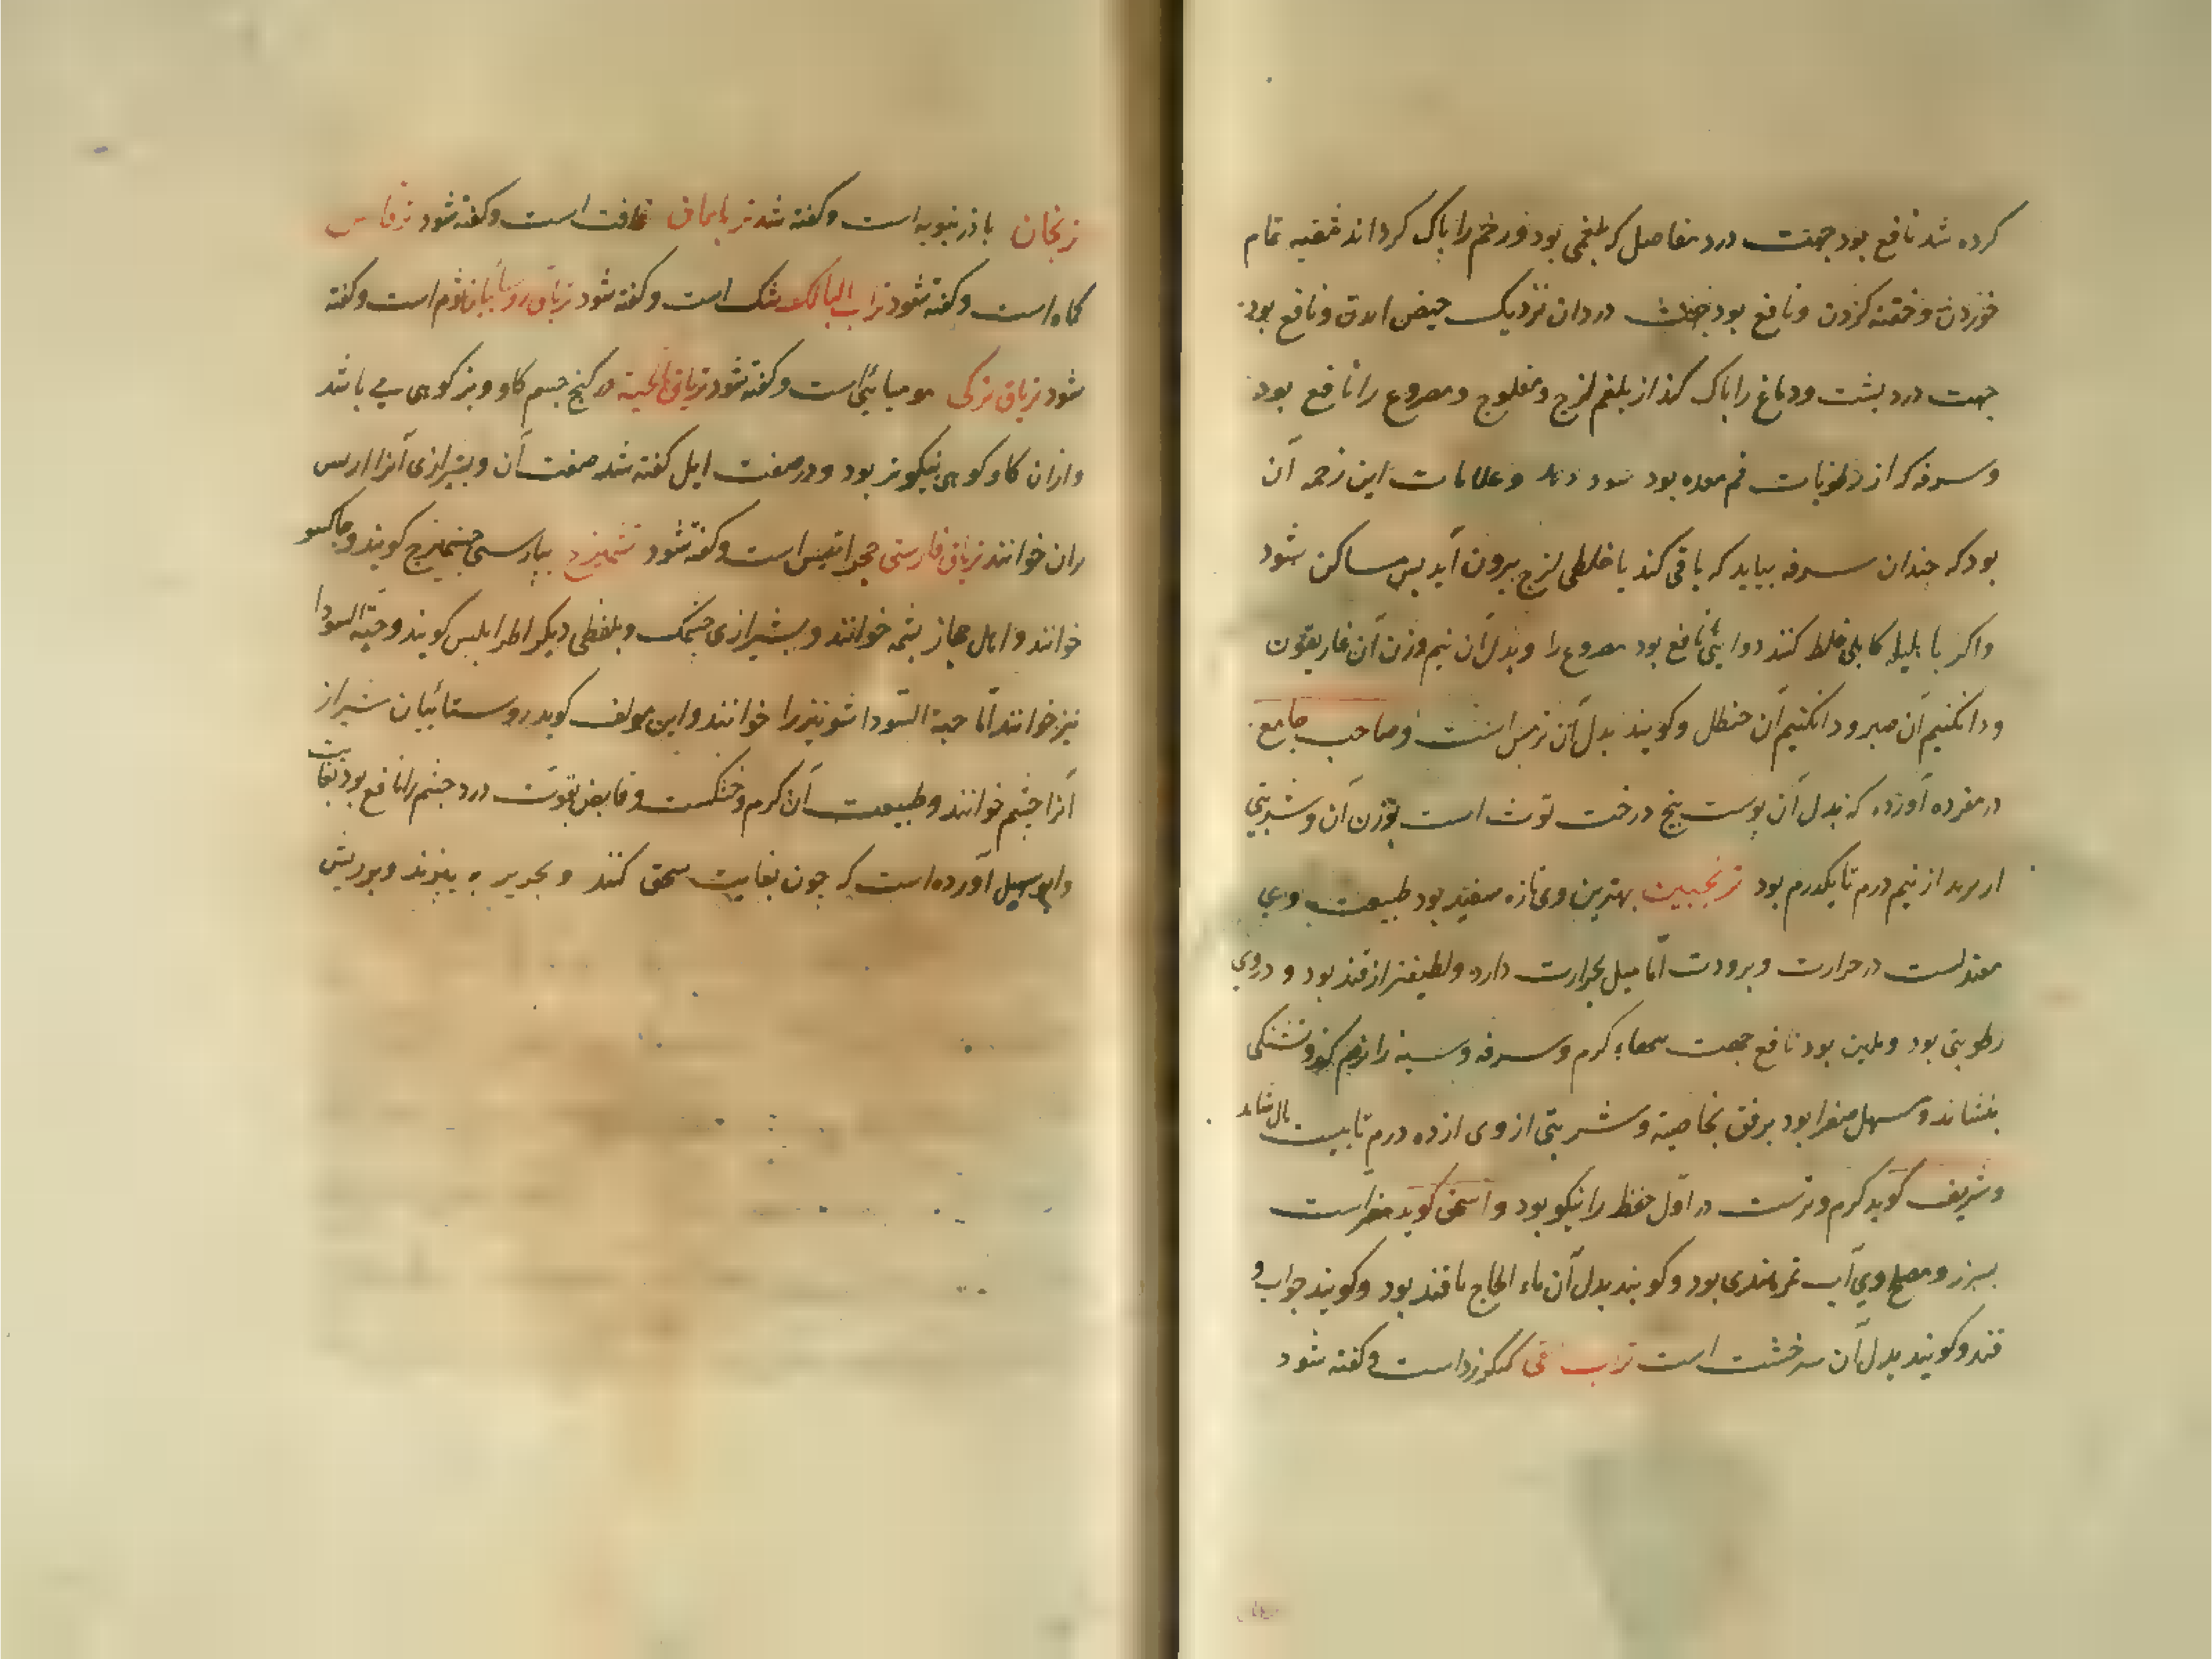 کرده شد نافع بود جهت درد مفاصل که بلغمی بود و رحم را پاک کرداند تنقیه تمام
خوردن و حقنه کردن و نافع بود جهت دردان نزدیک حیض امدن و نافع بود
جهت درد پشت و دماغ را پاک کند از بلغم لزج و مفلوج و مصروع را نافع بود
و سرفه که از رطوبات فم معده بود سود دهد و علامات این زحمه آن
بود که چندان سرفه بیاید که یا قی کند یا خلطی لزج بیرون آید پس ساکن شود
و اکر با هلیله کابلی خلط کنند دوایی نافع بود مصروع را و بدل آن نیم وزن آن غاریقون
و دانکنیم آن صبر و دانکنیم آن حنظل و کویند بدل آن ترمس است و صاحب جامع
در مفرده آورده که بدل آن پوست بیخ درخت توث است بوزن آن و شربتی
از نیم درم تا یکدرم بود ترنجبین بهترین وی تازه سفید بود طبیعت وی
معتدلست در حرارت و برودت اما میل بحرارت دارد و لطیفتر از قند بود و در وی
رطوبتی بود و ملین بود نافع جهت تبهاء کرم و سرفه و سینه را نرم کند و تشنکی
بنشاند و مسهل صفرا بود برفق بخاصیة و شربتی از وی از ده درم تا بیست
و شریف کوید کرم و ترست در اول حفظ را نیکو بود و اسحق کوید مضر است
بسپرز و مصلح وی آب تمر هندی بود و کویند بدل آن ماء الحاج با قند بود و کویند جواب و
قند و کویند بدل آن شیرخشت است تراب قی کنکرزد است و کفته شود
ترنجان باذرنبویه است و کفته شد غافت است و کفته شود
کاه است و کفته شود تراب الهالک شک است و کفته شود تریاق ثوم است و کفته
شود تریاق ترکی مومیائی است و کفته شود تریاق الحیة کنج چشم کاو و بز کوهی می باشد
و ازان کاو کوهی نیکوتر بود و در صفت ایل کفته شد صفت آن و بشیرازی آنرا
ران خوانند تریاق فارسی حجر التیس است و کفته شود تشمیزج بپارسی چشمیزج کویند و چاکسو
خوانند و اهل حجاز بشمه خوانند و بشیرازی چشمک و بلفظی دیکر کویند و حبة السودا
نیز خوانند اما حبة السودا شونیز را خوانند و این مولف کوید روستائیان شیراز
آنرا چشم خوانند و طبیعت آن کرم و خشکست و قابض بقوت درد چشم را نافع بود بغایت
و ابو سهیل آورده است که چون بغایت سحق کنند و بحریر به بیزند و بر ریش